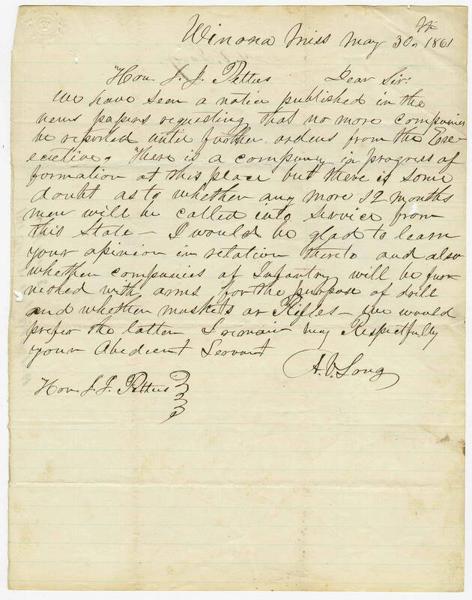 Winona Miss May 30th 1861
"Hon. J. J. Pettus Dear Sir:
We have seen a notice published in the
news papers requesting that no more companies
be reported until further orders from the Exe-
ecutive. There is a company in progress of
formation at this place but there is some
doubt as to whether any more 12 months
men will be called into service from
this State – I would be glad to learn
your opinion in relation thereto and also
whether companies of Infantry will be fur-
nished with arms for the purpose of drill
and whether muskets or Rifles – we would
prefer the latter I remain very Respectfully
your Obedient Servant
A. V. Long
Hon J. J. Pettus